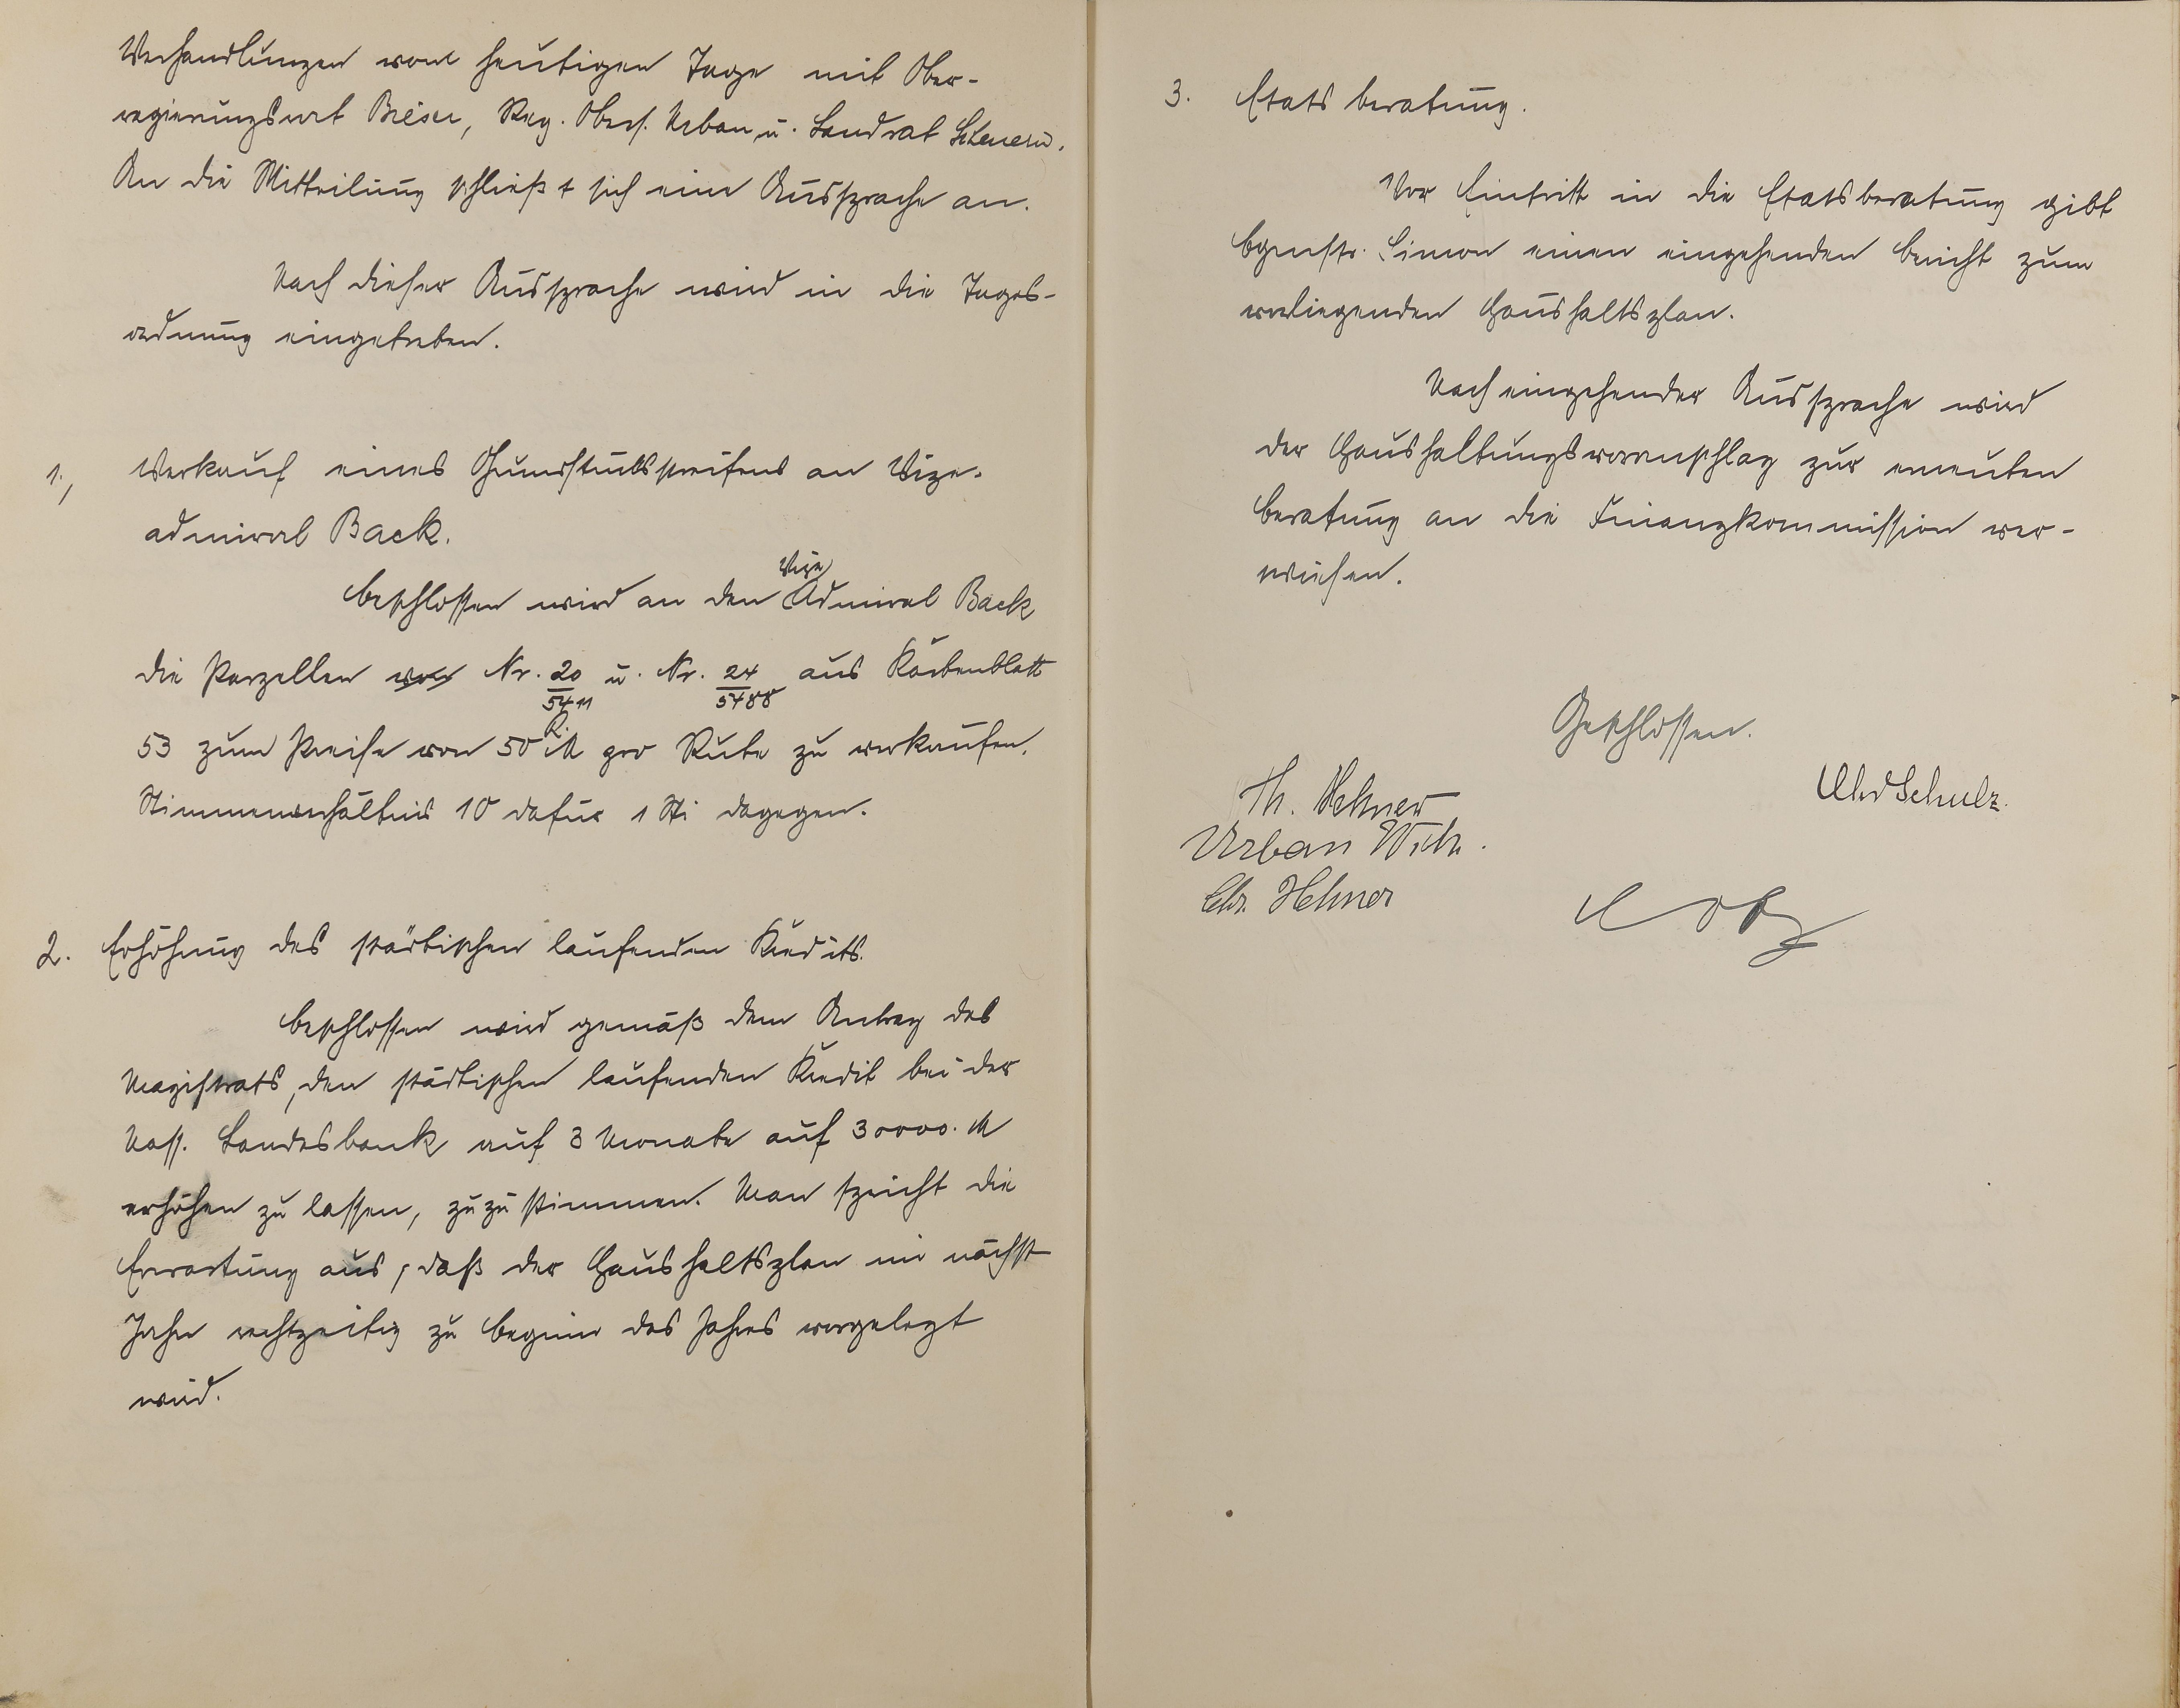 Verhandlungen vom heutigen Tage mit Ober-
regierungsrat Bréser, Reg. Obers. Urban u. Landrat
An die Mitteilung schließt sich eine Aussprache an.
Nach dieser Aussprache wird in die Tages-
ordnung eingetreten.
1., Verkauf eines Grundstücksstreifens an Vize-
admiral Back.
Beschlossen wird an den Vize Admiral Back
die Parzellen von Nr. 20/5411 u. Nr. 24/5488 aus Kartenblatt
53 zum Preise von 50 R.M pro Rute zu verkaufen.
Stimmenverhältnis 10 dafür 1 Sti dagegen.
2. Erhöhung des städtischen laufenden Kredits.
Beschlossen wird gemäß dem Antrag des
Magistrats, den städtischen laufenden Kredit bei der
Nass. Landesbank auf 3 Monate auf 30000. M
erhöhen zu lassen, zuzustimmen. Man spricht die
Erwartung aus, daß der Haushaltsplan im nächst
Jahre rechtzeitig zu Beginn des Jahres vorgelegt
wird.
3. Etatsberatung.
Vor Eintritt in die Etatsberatung gibt
Bgmstr. Simon einen eingehenden Bericht zum
vorliegenden Haushaltsplan.
Nach eingehender Aussprache wird
der Haushaltungsvoranschlag zur erneuten
Beratung an die Finanzkommission ver-
wiesen.
Geschlossen.
Th. Hehner
Schulz.
Urban Wilh.
Chr. Hehner